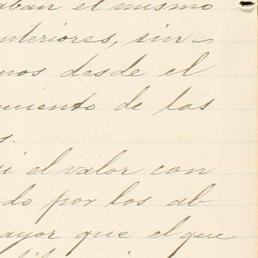 aban el mismo
nteriores, sin-
nos desde el
miento de las
s.
i el valor con
do por los ab
ayor que el que